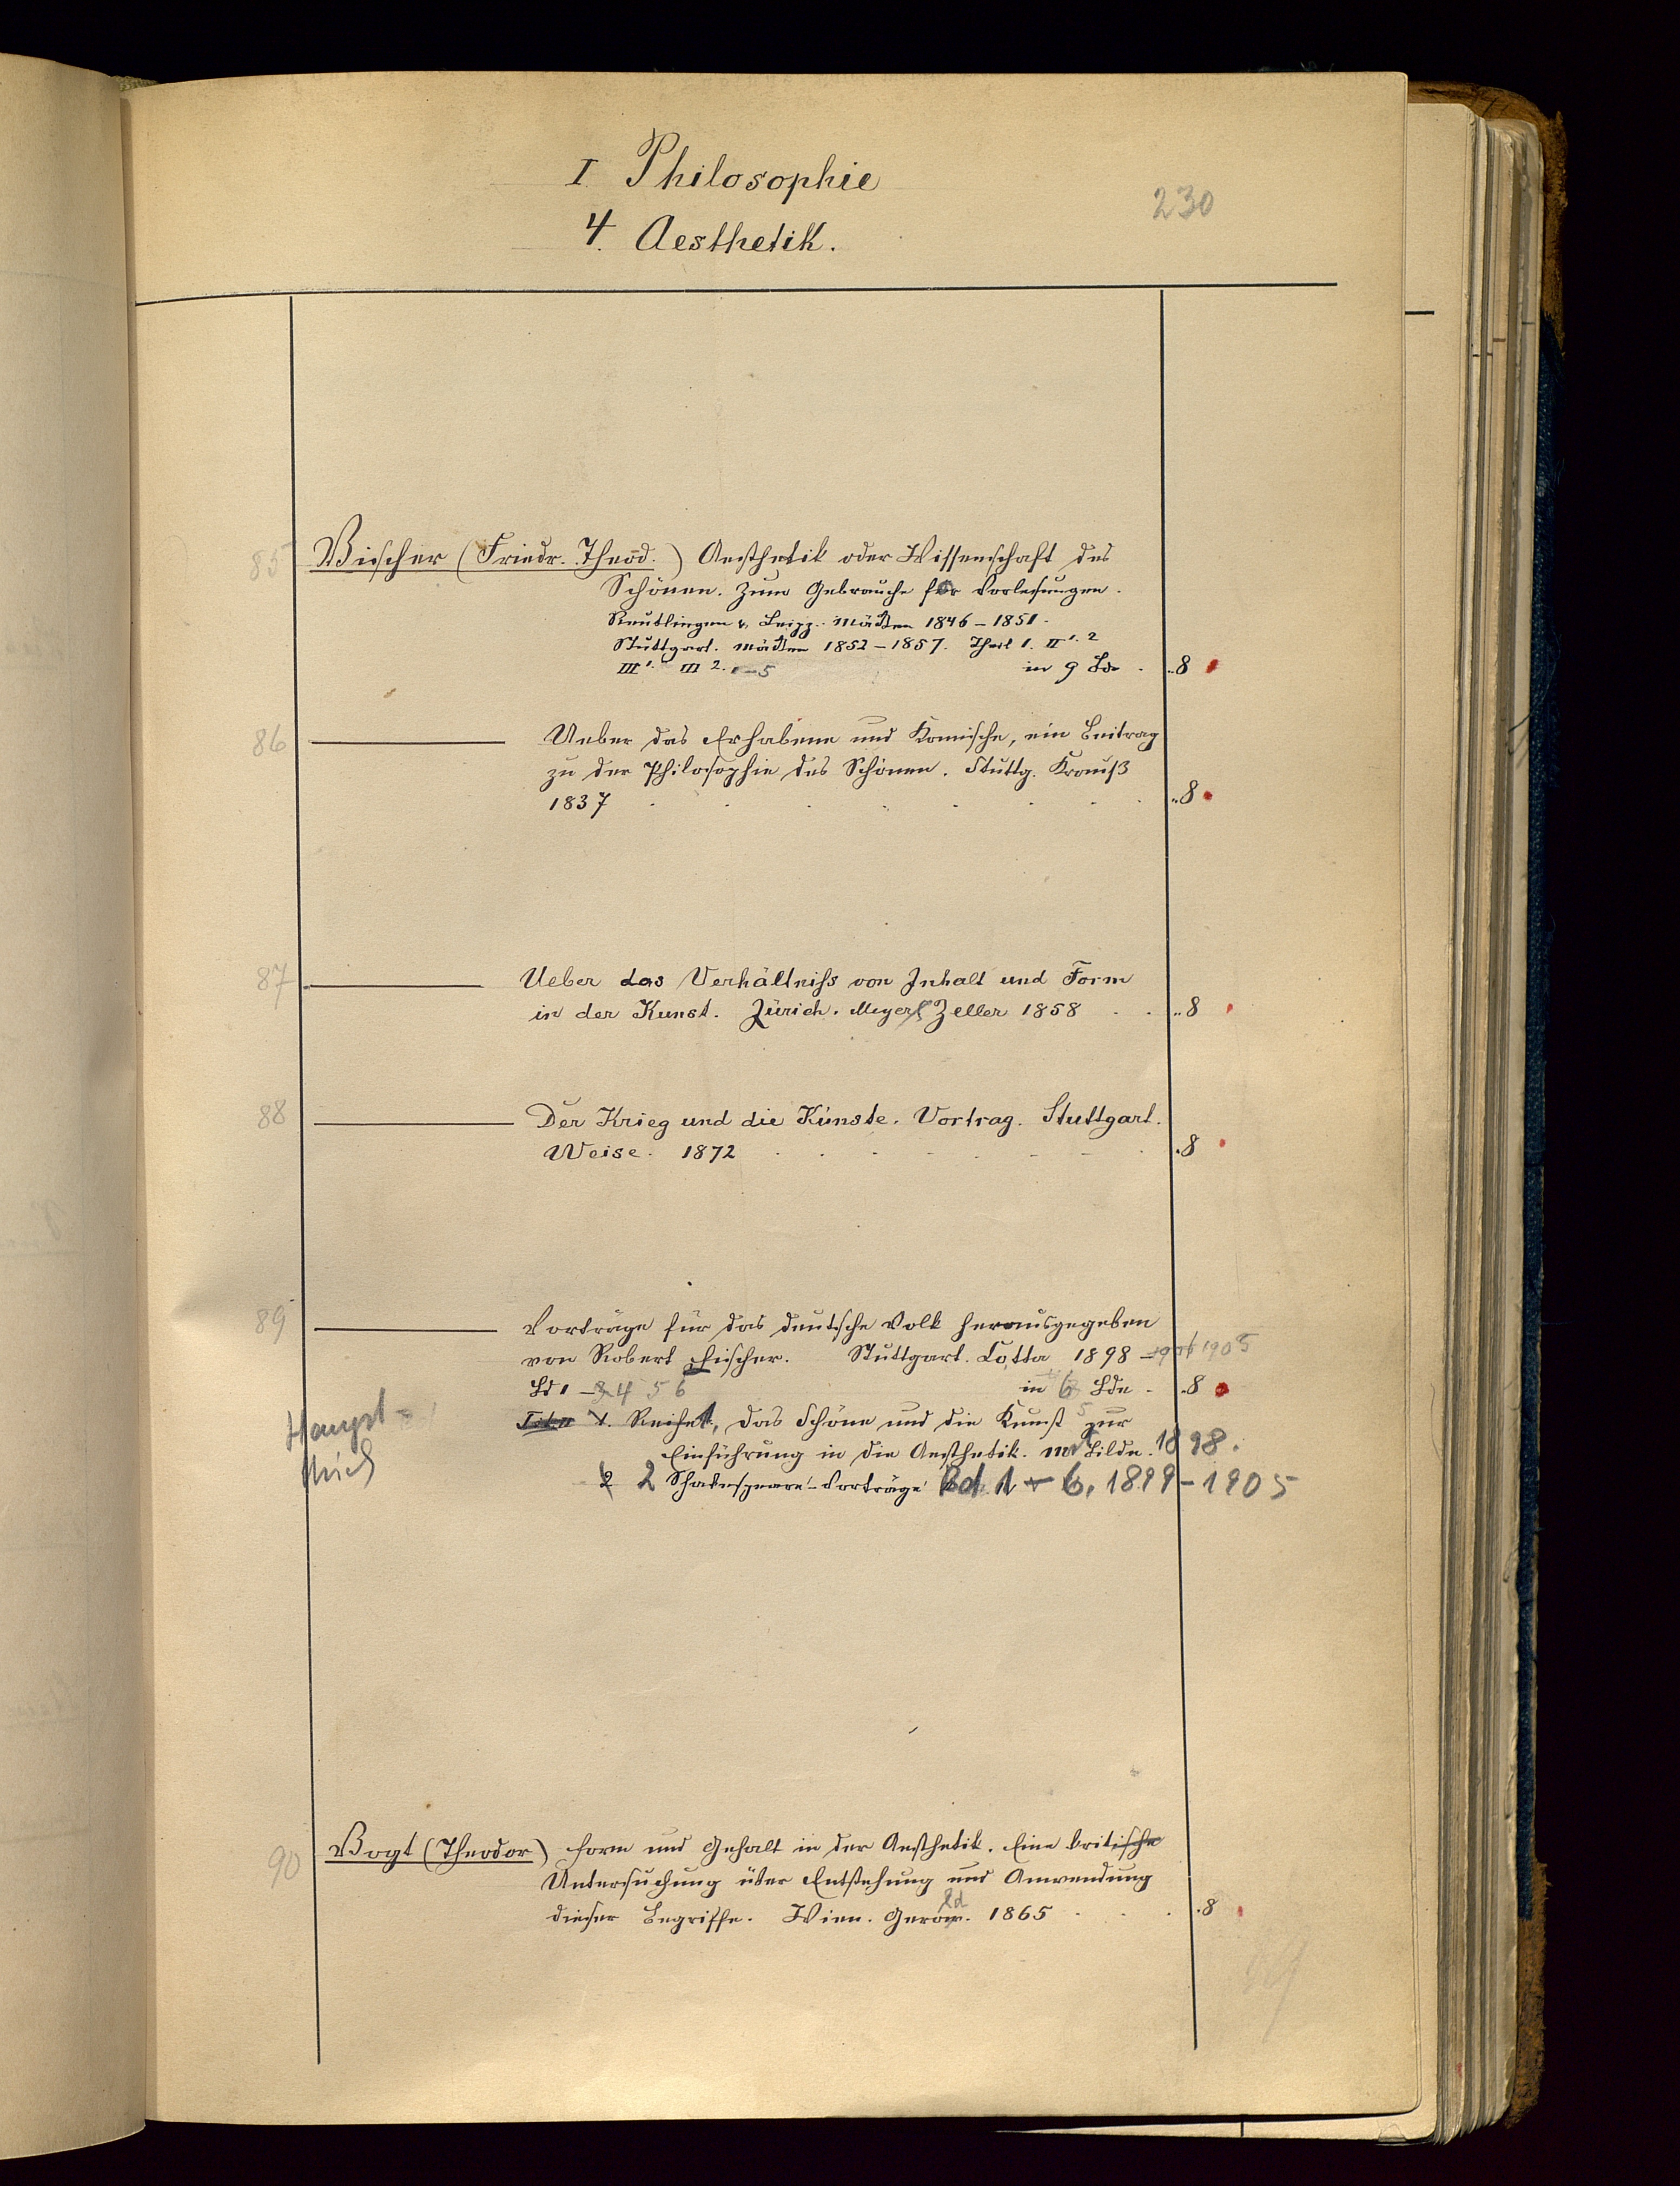 I Philosophie
230
4. Aesthetik.
85 Vischer (Friedr. Theod.) Aesthetik oder Wissenschaft des
Schönen. Zum Gebrauche für Vorlesungen.
Reutlingen u. Leipz. Mäcken 1846-1851.
Stuttgart. Mäcken 1852-1857. Theil I. II 1. 2
III 1. III 2. 1-5 in 9 Bde . 8
86 Ueber das Erhabene und Komische, ein Beitrag
zu der Philosophie des Schönen. Stuttg. Krauß
1837 8
87 Ueber das Verhältniss von Inhalt und Form
in der Kunst. Zürich. Meyer & Zeller 1858 . . 8
88 Der Krieg und die Künste. Vortrag. Stuttgart.
Weise. 1872 8
89 Vorträge für das deutsche Volk herausgegeben
von Robert Vischer. Stuttgart. Cotta 1898-1905
Bd 1-3 4 5 6 in 6 Bde . 8
Haupt-
1. Reihe, das Schöne und die Kunst zur
Einführung in die Aesthetik. 1898.
2 Shakespeare-Vorträge Bd. 1-6, 1899-1905
90 Vogt (Theodor) Form und Gehalt in der Aesthetik. Eine kritische
Untersuchung über Entstehung und Anwendung
dieser Begriffe. Wien. Gerold. 1865 . . . 8